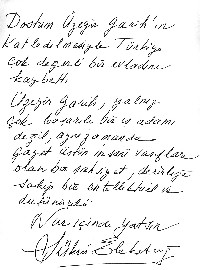 Dostum Üzeyir Garih'in
Katledilmesiyle Türkiye
çok değerli bir evladını
kaybetti.
Üzeyir Garih, yalnız
çok başarılı bir iş adamı
değil, aynı zamanda
gayet üstün insani vasıfları
olan bir şahsiyet, derinliğe
sahip bir entellektüel ve
düşünürdü.
Nur içinde yatsın